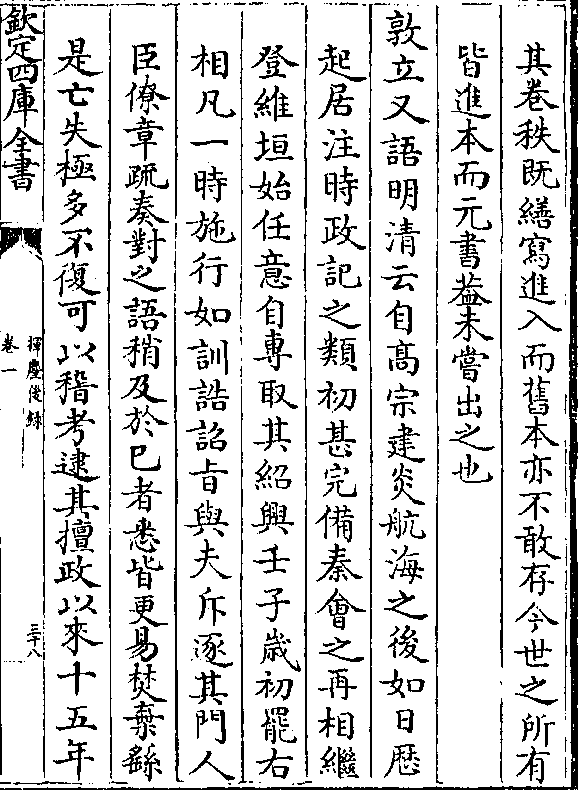 其卷秩既繕寫進入而舊本亦不敢存今世之所有
皆進本而元書葢未嘗出之也
敦立又語明清云自髙宗建炎航海之後如日厯
起居注時政記之類初甚完備秦㑹之再相繼
登維垣始任意自專取其紹興壬子歳初罷右
相凡一時施行如訓誥詔㫖與夫斥逐其門人
臣僚章疏奏對之語稍及於己者悉皆更易焚棄繇
是亡失極多不復可以稽考逮其擅政以來十五年
欽定四庫全書
揮麈後錄
卷一
三十八